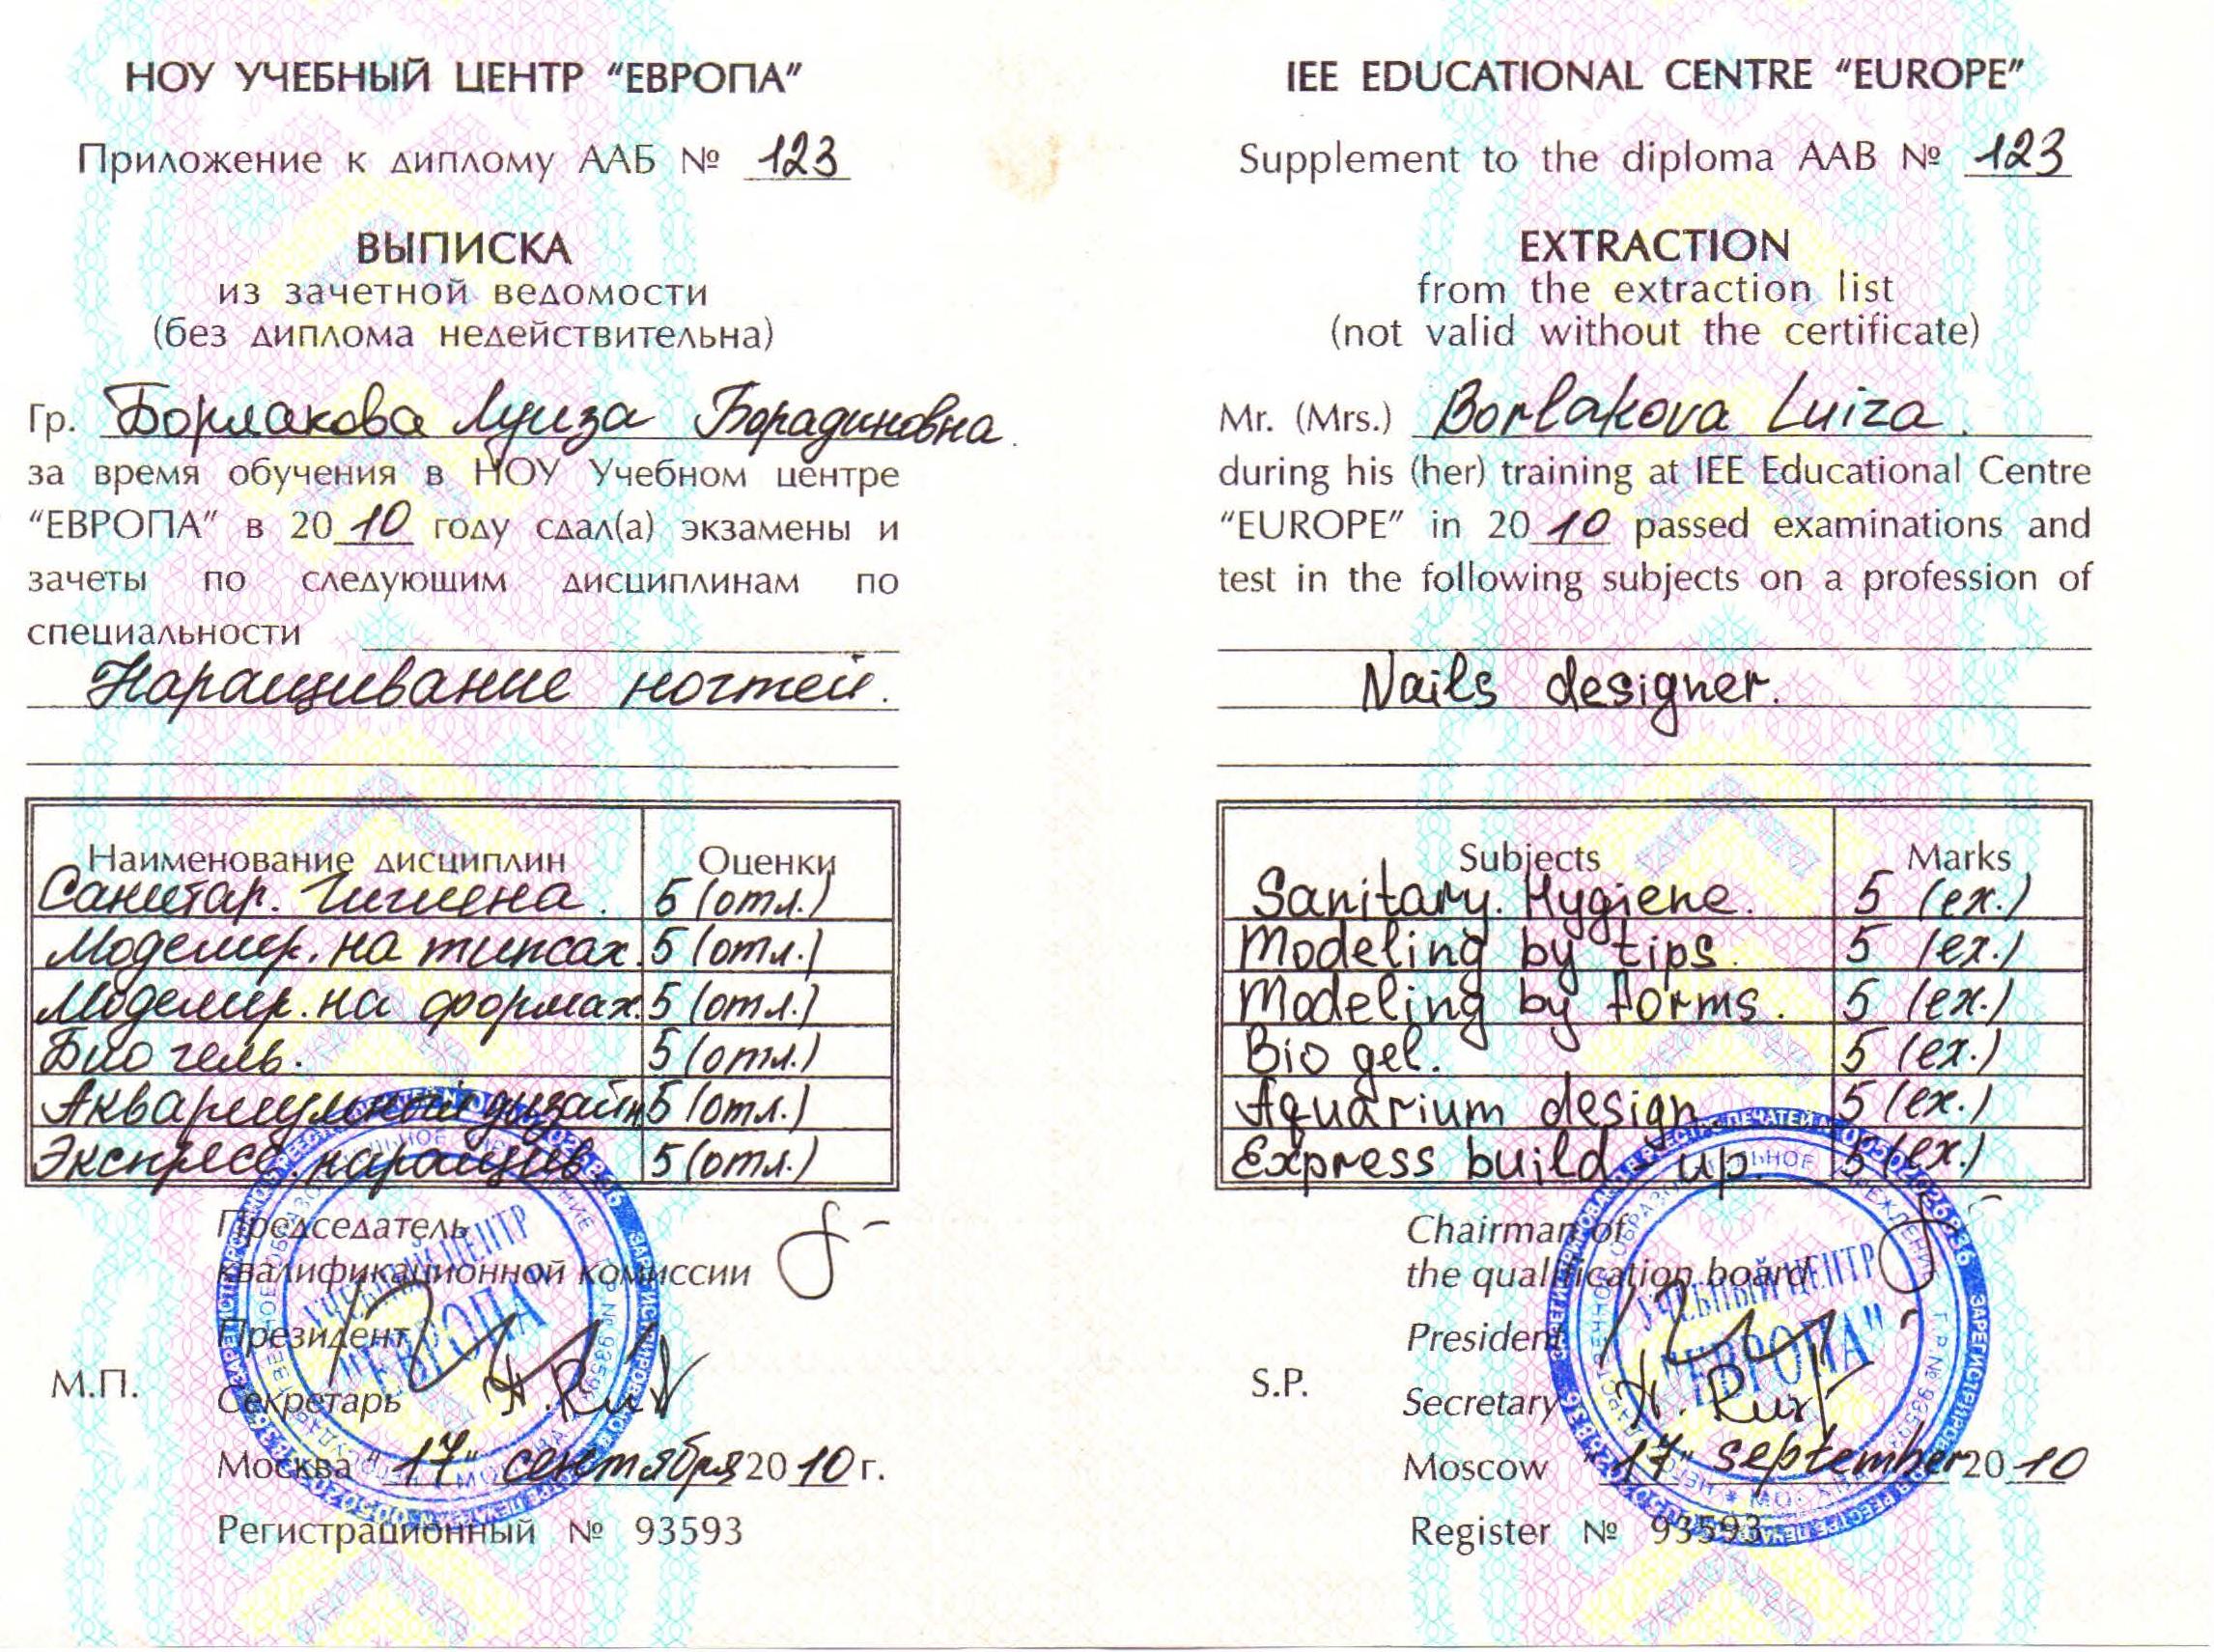 НОУ УЧЕБНЫЙ ЦЕНТР “ЕВРОПА”
Приложение к диплому ААБ № 123
ВЫПИСКА
из зачетной ведомости
(без диплома недействительна)
Гр. Борлакова Луиза Борадиновна
за время обучения в НОУ Учебном центре
“ЕВРОПА” в 2010 году сдал(а) экзамены и
зачеты по следующим дисциплинам по
специальности
Наращивание ногтей.
Наименование дисциплин Оценки
Санитар. Гигиена. 5 (отл.)
Моделир. на типсах. 5 (отл.)
Моделир. на формах. 5 (отл.)
Био гель. 5 (отл.)
Аквариумный дизайн 5 (отл.)
Экспресс. наращив 5 (отл.)
Председатель
квалификационной комиссии
Президент
М.П.
Секретарь
Москва “17” сентября 2010 г.
Регистрационный № 93593
IEE EDUCATIONAL CENTRE “EUROPE”
Supplement to the diploma AAB № 123
EXTRACTION
from the extraction list
(not valid without the certificate)
Mr. (Mrs.) Borlakova Luiza.
during his (her) training at IEE Educational Centre
“EUROPE” in 2010 passed examinations and
test in the following subjects on a profession of
Nails designer.
Subjects Marks
Sanitary. Hygiene. 5 (ex.)
Modeling by tips. 5 (ex.)
Modeling by forms. 5 (ex.)
Bio gel. 5 (ex.)
Aquarium design. 5 (ex.)
Express build-up. 5 (ex.)
Chairman of
the qualification board
President
S.P.
Secretary
Moscow “17” september 2010
Register № 93593
УЧЕБНЫЙ ЦЕНТР
"ЕВРОПА"
УЧЕБНЫЙ ЦЕНТР
"ЕВРОПА"